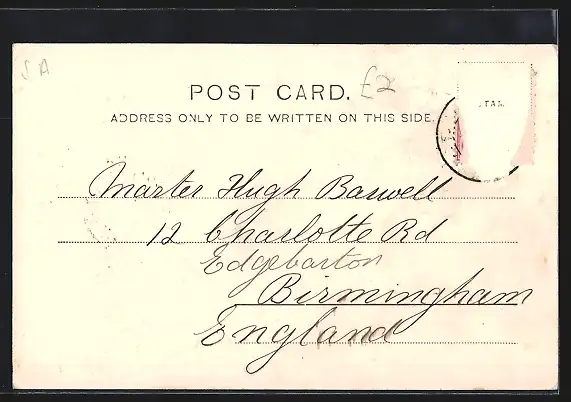 S A
£2
POST CARD.
ADDRESS ONLY TO BE WRITTEN ON THIS SIDE.
Master Hugh Baswell
12 Charlotte Rd
Edgebarton
Birmingham
England